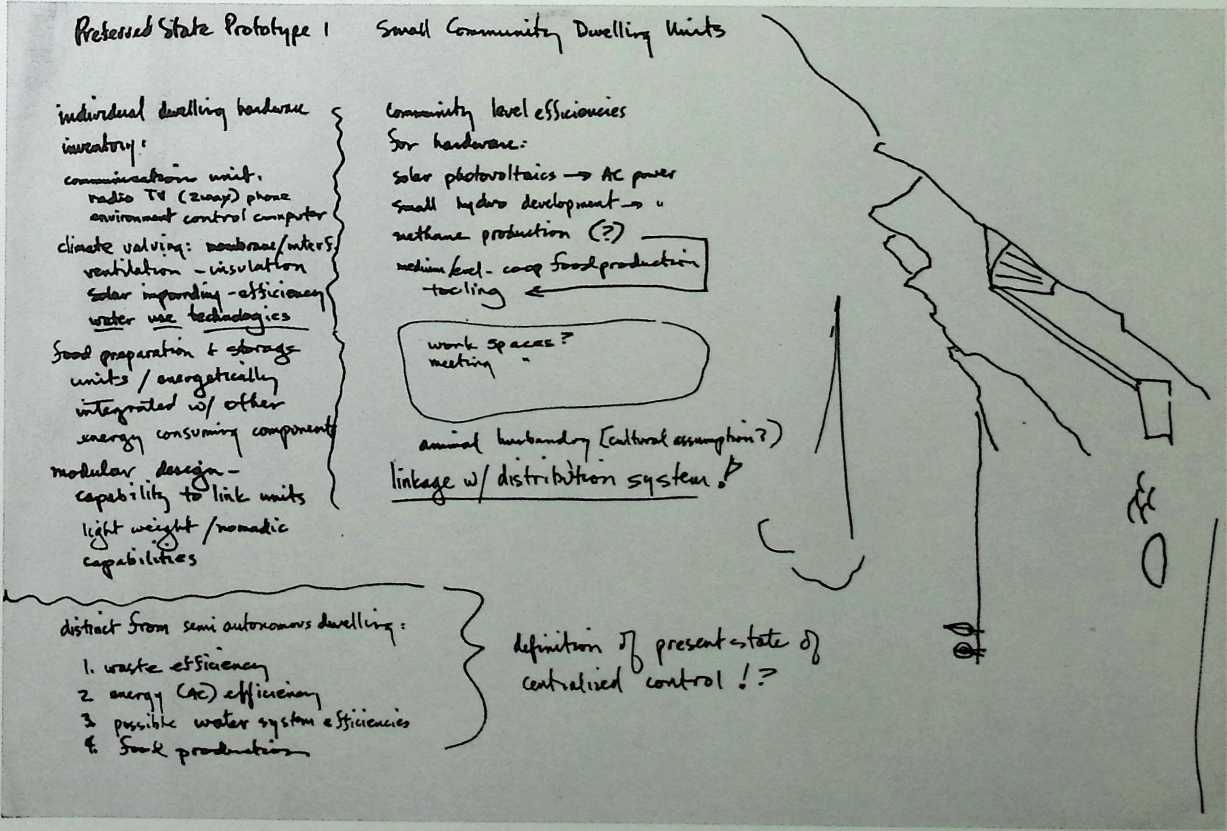 Preferred State Prototype 1 Small Community Dwelling Units
individual dwelling hardware
inventory:
communication unit.
radio TV (2way) phone
environment control computer
climate valving: membrane/interf.
ventilation - insulation
solar impounding - efficiency
water use technologies
food preparation & storage
units / energetically
integrated w/ other
energy consuming components
modular design -
capability to link units
light weight / nomadic
capabilities
community level efficiencies
for hardware:
solar photovoltaics → AC power
small hydro development → "
methane production (?)
medium level - coop food production
tooling
work spaces?
meeting "
animal husbandry [cultural assumption?)
linkage w/ distribution system!
distinct from semi autonomous dwelling:
1. waste efficiency
2 energy (AC) efficiency
3. possible water system efficiencies
4. food production
definition of present state of
centralized control !?